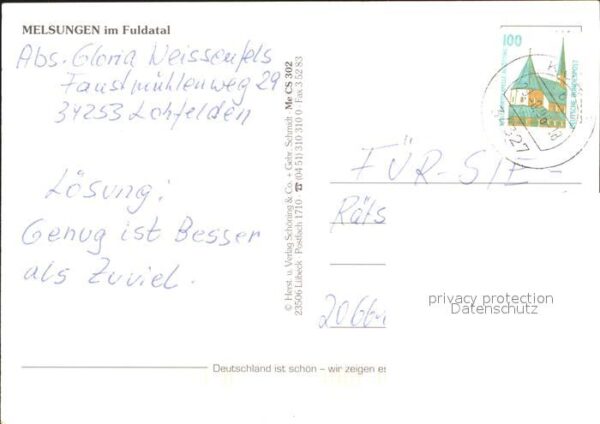 MELSUNGEN im Fuldatal
Abs. Gloria Weissenfels
Faustmühlenweg 29
34253 Lohfelden
Lösung:
Genug ist Besser
als Zuviel.
© Herst. u. Verlag Schöning & Co. + Gebr. Schmidt Me CS 302
23506 Lübeck · Postfach 1710 · ☎ (04 51) 310 310 0 · Fax 3 52 83
100
DEUTSCHE BUNDESPOST
FÜR-SIE-
Räts
2066
privacy protection
Datenschutz
Deutschland ist schön – wir zeigen es